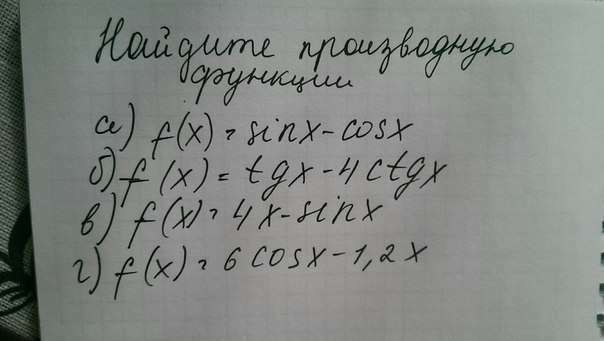 Найдите производную
функции
а) f(x) = sinx - cosx
б) f(x) = tgx - 4ctgx
в) f(x) = 4x - sinx
г) f(x) = 6cosx - 1,2x